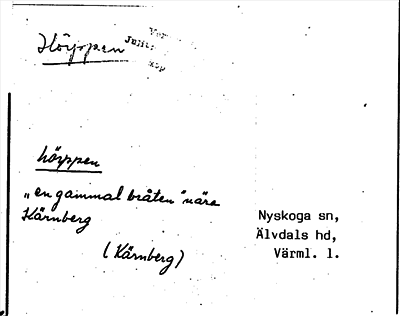 Höjppen
höyppen
„en gammal bråten" nära
Kärnberg
(Kärnberg)
Nyskoga sn,
Älvdals hd,
Värml. l.